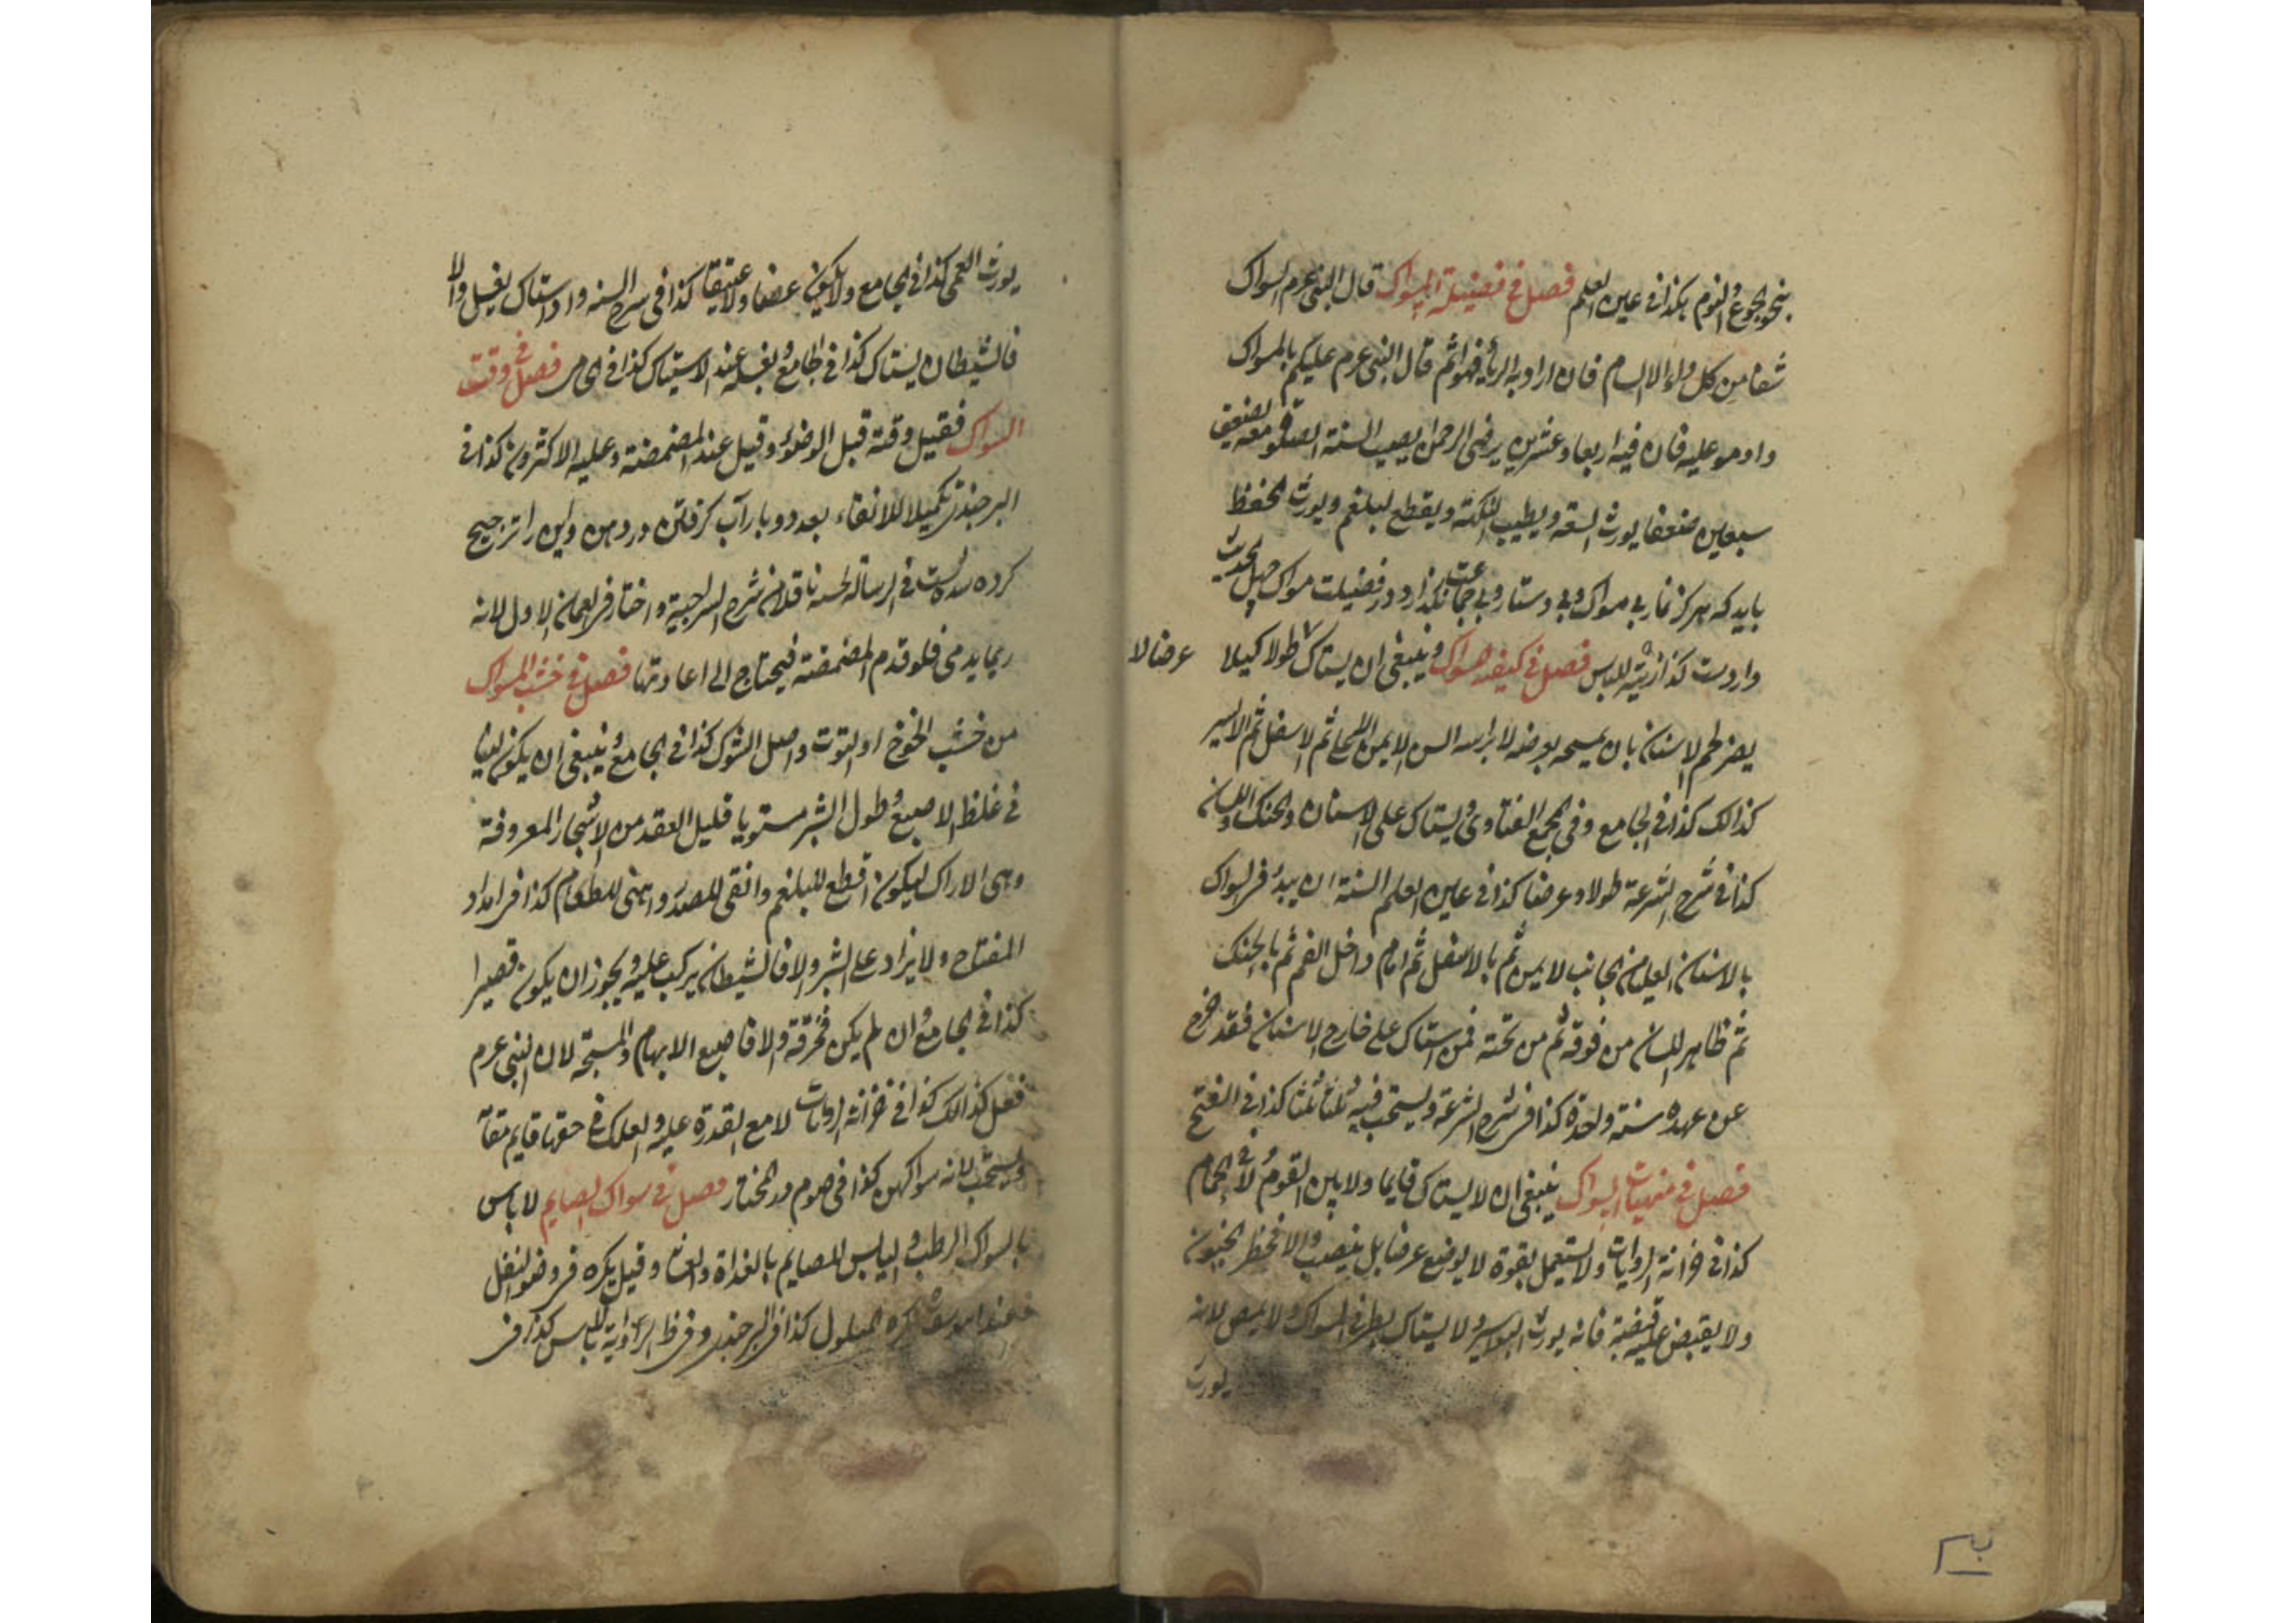 بنحو الجوع والنوم هكذا فى عين العلم فصل فى فضيلة المسواك قال النبى عرم السواك
شفا من كل داء الا السام فان اراد به الرياء فهو اثم قال النبى عرم عليكم بالمسواك
داوموا عليه فان فيه اربعا وعشرين يرضى الرحمن يصيب السنة الصلوة معه يضعف
سبعين ضعفا يورث السعة ويطيب النكهة ويقطع البلغم ويورث الحفظ
بايد كه هركز نماز بى مسواك وبى دستار وبى جماعت نكذارد در فضيلت مسواك چهل حديث
واردست كذا فصل فى كيفية المسواك وينبغى ان يستاك لا طولا كيلا عرضا لا
يضر لحم الاسنان بان يمسحه بعرضه الايمن ثم الاسفل ثم الايسر
كذالك كذا فى الجامع وفى مجمع الفتاوى ويستاك على الاسنان والحنك واللسان
كذا فى شرح الشرعة طولا وعرضا كذا فى عين العلم السنة ان يبدء فى السواك
بالاسنان العليا من الجانب الايمن ثم بالاسفل ثم امام داخل الفم ثم بالحنك
ثم ظاهر اللسان من فوقه ثم من تحته فمن استاك على خارج الاسنان فقد خرج
عن عهده سنة واحدة كذا فى شرح الشرعة ويستحب فيه ثلثا ثلثا كذا فى الفتح
فصل فى منهيات السواك ينبغى ان لا يستاك قايما ولا بين القوم ولا فى الحمام
كذا فى خزانة الروايات ولا يستعمل بقوة لا يوضع عرضا بل ينصب والا فخطر الجنون
ولا يقبض عليه قبضة فانه يورث البواسير ولا يستاك بطرفى السواك ولا يمص لانه
يورث
يورث العمى كذا فى الجامع ولا يكون عضا ولا عتيقا كذا فى شرح السنه واذا استاك يغسل والا
فالشيطان يستاك كذا فى الجامع ويغسله عند الاستياك كذا فى فصل فى وقت
السواك فقيل وقته قبل الوضوء وقيل عند المضمضة وعليه الاكثرون كذا فى
البرجندى تكميلا للانقاء بعد دو بار آب كرفتن در دهن واين را ترجيح
كرده شده است فى الرسالة ناقلا من شرح السراجية واختار فى العمان الاول لانه
ربما يدمى فلو قدم المضمضة فيحتاج الى اعادتها فصل فى خشب المسواك
من خشب الخوخ او التوت واصل الشوك كذا فى الجامع وينبغى ان يكون لينا
فى غلظ الاصبع وطول الشبر مستويا قليل العقد من الاشجار المعروفة
وهى الاراك ليكون اقطع للبلغم وانقى للصدر واهنى للطعام كذا فى امداد
المفتاح ولا يزاد على الشبر والا فالشيطان يركب عليه ويجوز ان يكون قصيرا
كذا فى الجامع وان لم يكن فخرقة والا فاصبع الابهام والمسبحة لان النبى عرم
فعل كذالك كذا فى خزانة الروايات لا مع القدرة عليه والعلك فى حقها قايم مقامه
ويستحب لانه سواكهن كذا فى صوم در المختار فصل فى سواك الصايم لا باس
بالسواك الرطب واليابس للصايم بالغداة والعشا وقيل يكره فى وضو النفل
فعند ابى يوسف يكره المبلول كذا فى البرجندى وفى ظ الرواية لا باس كذا فى